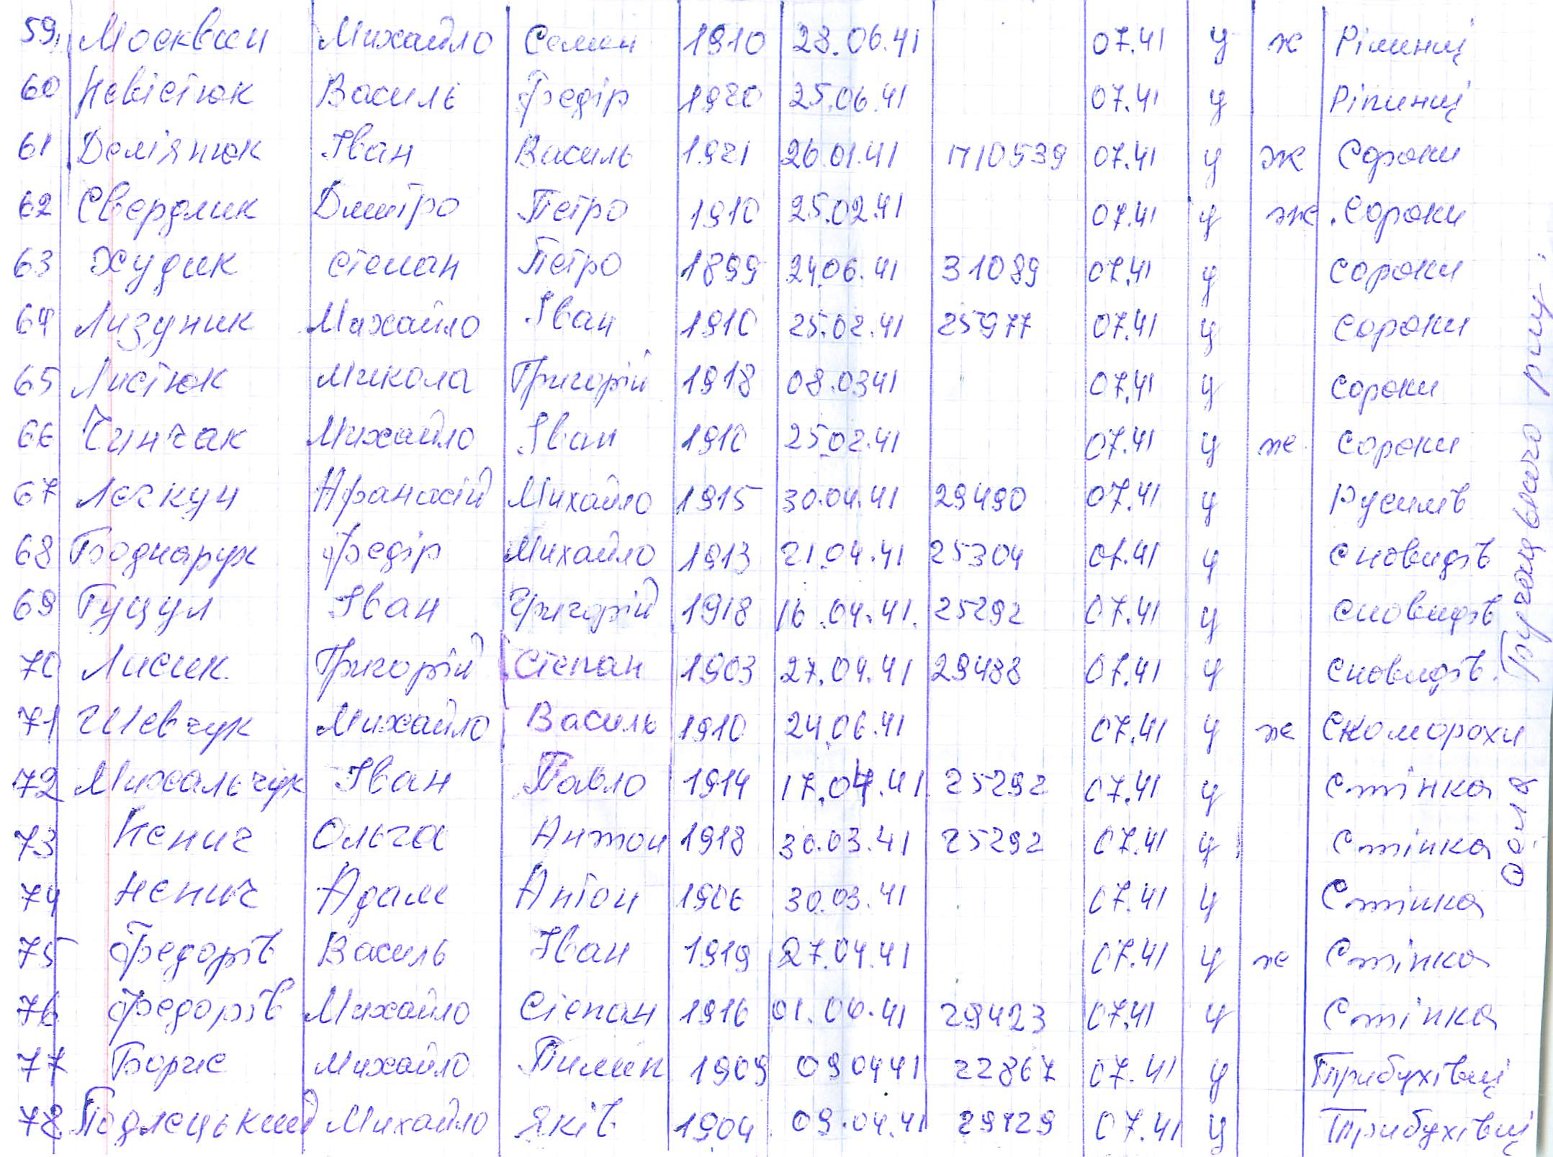 59. Москвин Михайло Семен 1910 23.06.41 07.41 у ж Ріпинці
60 Невістюк Василь Федір 1920 25.06.41 07.41 у Ріпинці
61 Демʼянюк Іван Василь 1921 26.01.41 1710539 07.41 у ж Сороки
62 Свердлик Дмитро Петро 1910 25.02.41 07.41 у ж Сороки
63 Худик Степан Петро 1899 24.06.41 31089 07.41 у Сороки
64 Лизуник Михайло Іван 1910 25.02.41 25977 07.41 у Сороки
65 Листюк Микола Григорій 1918 08.0341 07.41 у Сороки
66 Чинчак Михайло Іван 1910 2502.41 07.41 у ж Сороки
67 Лєскун Афанасій Михайло 1915 30.04.41 29490 07.41 у Русилів
68 Боднарук Федір Михайло 1913 21.04.41 25304 07.41 у Сновидів
69 Гуцул Іван Григорій 1918 16.04.41. 25292 07.41 у Сновидів
70 Лисик Григорій Степан 1903 27.04.41 29488 07.41 у Сновидів
71 Шевчук Михайло Василь 1910 24.06.41 07.41 у ж Скоморохи
72 Михальчук Іван Павло 1914 17.04.41 25292 07.41 у Стінка
73 Непич Ольга Антон 1918 30.03.41 25292 07.41 у Стінка
74 Непич Адам Антон 1906 30.03.41 07.41 у Стінка
75 Федорів Василь Іван 1919 27.04.41 07.41 у ж Стінка
76 Федорів Михайло Степан 1916 01.04.41 29423 07.41 у Стінка
77 Борис Михайло Пилип 1909 09.0441 22867 07.41 у Трибухівці
78 Подлецький Михайло Яків 1904 09.04.41 29129 07.41 у Трибухівці
Бучацького р-ну